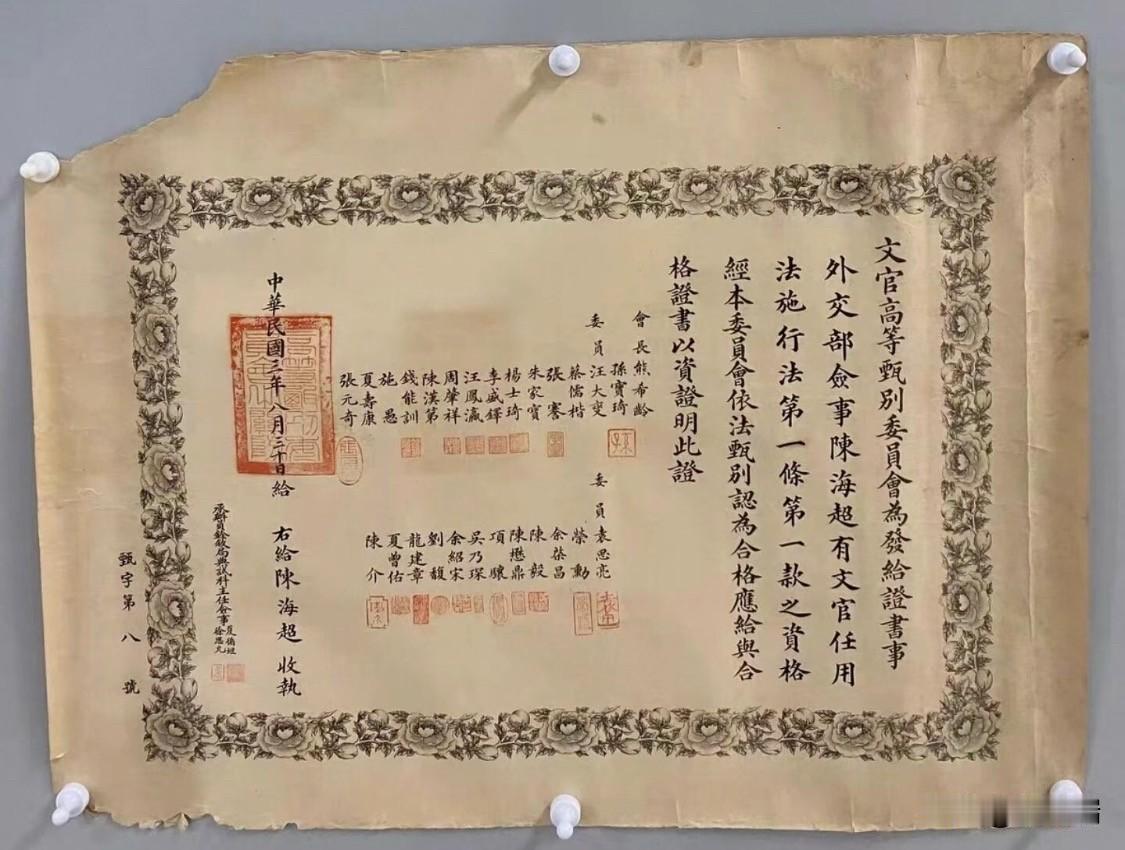 文官高等甄別委員會為發給證書事
外交部僉事陳海超有文官任用
法施行法第一條第一款之資格
經本委員會依法甄別認為合格應給與合
格證書以資證明此證
會長熊希齡
孫寶琦
委員汪大燮
蔡儒楷
張謇
朱家寶
楊士琦
李盛鐸
汪鳳瀛
周肇祥
陳漢第
錢能訓
施愚
夏壽康
張元奇
委員袁思亮
榮勳
余棨昌
陳毅
陳懋鼎
項驤
吳乃琛
余紹宋
劉馥
龍建章
夏曾佑
陳介
中華民國三年八月三十日給
右給陳海超收執
承辦員銓敘局典試科主任僉事
徐思允
甄字第八號